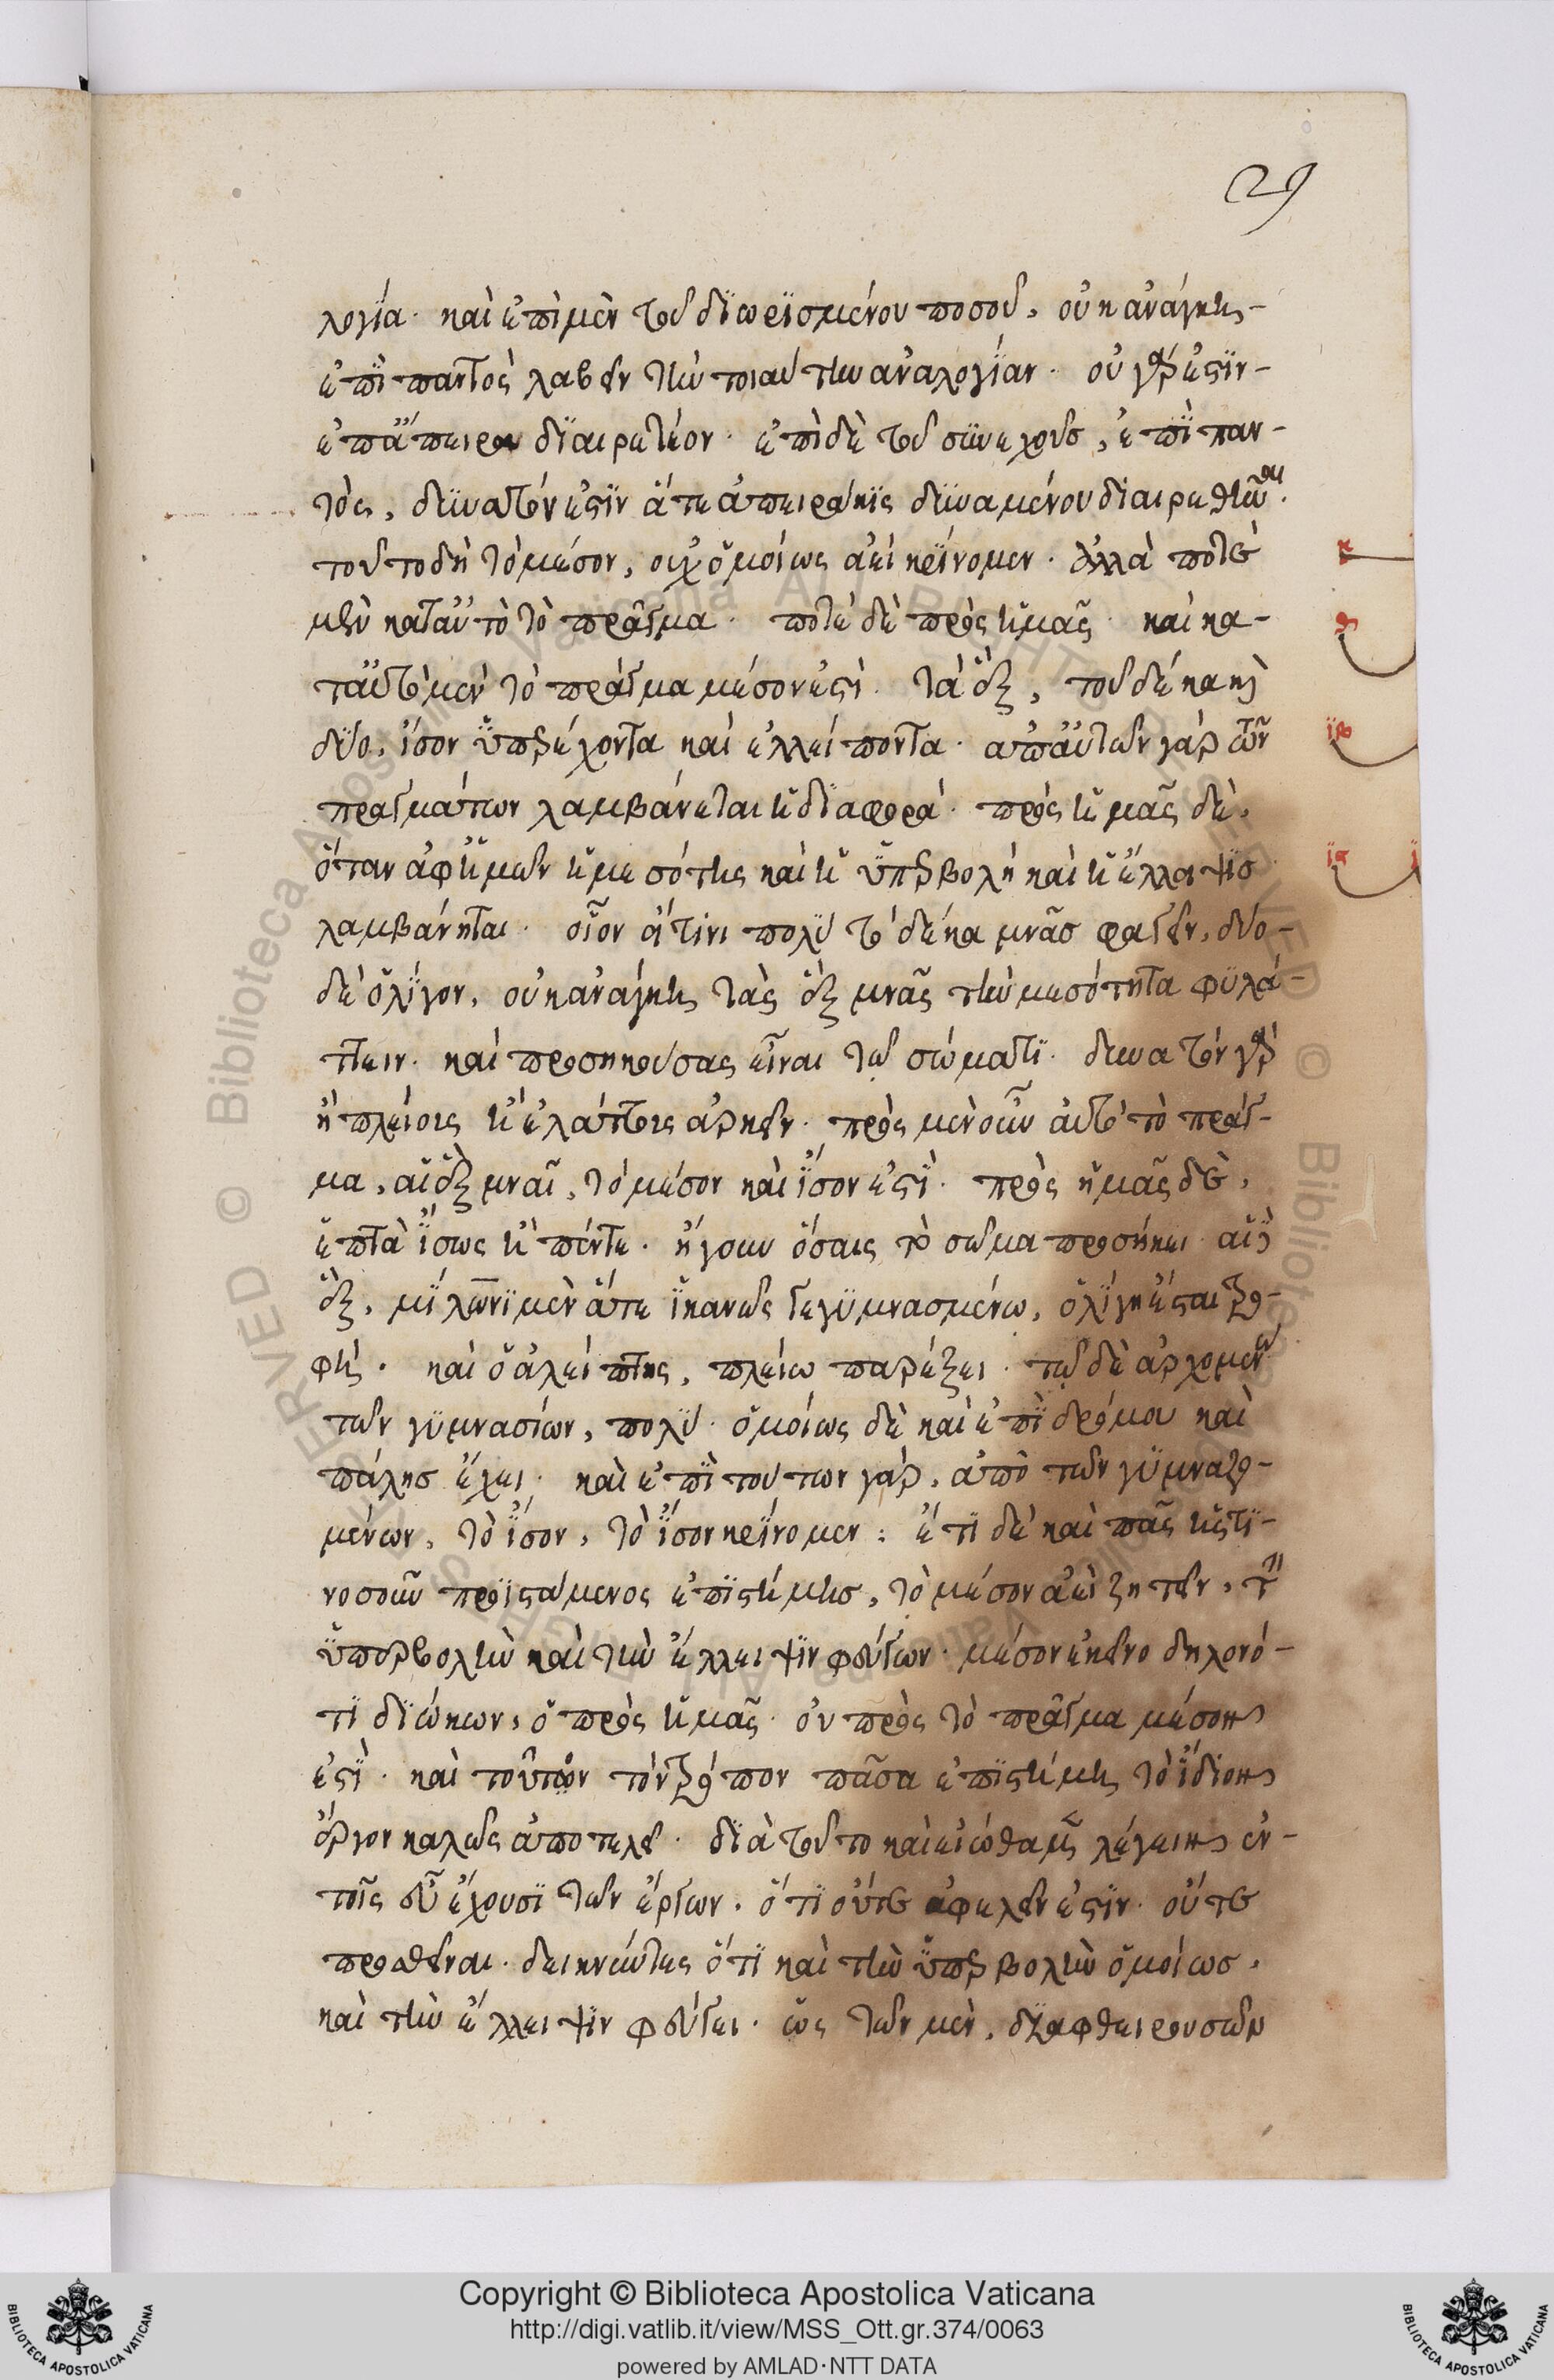 29
λογία· καὶ ἐπὶ μὲν τοῦ διωρισμένου ποσοῦ, οὐκ ἀνάγκης
ἐπὶ παντὸς λαβεῖν τὴν τοιαύτην ἀναλογίαν· οὐ γάρ ἐστιν
ἐπ' ἄπειρον διαιρετέον· ἐπὶ δὲ τοῦ συνεχοῦς, ἐπὶ παν-
τὸς, δυνατόν ἐστιν ἅτε ἀπειράκις δυναμένου διαιρεθῆναι·
τοῦτο δὴ τὸ μέσον, οὐχ ὁμοίως ἀεὶ κρίνομεν· ἀλλὰ ποτὲ
μὲν κατ' αὐτὸ τὸ πρᾶγμα· ποτὲ δὲ πρὸς ἡμᾶς· καὶ κα-
τ' αὐτὸ μὲν τὸ πρᾶγμα μέσον ἐστὶ· τὰ ἓξ, τοῦ δέκα καὶ
δύο, ἴσον ὑπερέχοντα καὶ ἐλλείποντα· ἀπ' αὐτῶν γὰρ τῶν
πραγμάτων λαμβάνεται ἡ διαφορά· πρὸς ἡμᾶς δὲ,
ὅταν ἀφ' ἡμῶν ἡ μεσότης καὶ ἡ ὑπερβολὴ καὶ ἡ ἔλλειψις
λαμβάνηται· οἷον εἴ τινι πολὺ τὸ δέκα μνᾶς φαγεῖν, δύο
δὲ ὀλίγον, οὐκ ἀνάγκης τὰς ἓξ μνᾶς τὴν μεσότητα φυλά-
ττειν· καὶ προσηκούσας εἶναι τῷ σώματι· δυνατὸν γὰρ
ἢ πλείοις ἢ ἐλάττοις ἀρκεῖν· πρὸς μὲν οὖν αὐτὸ τὸ πρᾶγ-
μα, αἱ ἓξ μναῖ, τὸ μέσον καὶ ἴσον ἐστὶ· πρὸς ἡμᾶς δὲ,
ἑπτὰ ἴσως ἢ πέντε· ἤγουν ὅσαις τὸ σῶμα προσήκει· αἱ γὰρ
ἓξ, μίλωνι μὲν ἅτε ἱκανῶς γεγυμνασμένω, ὀλίγη ἔσται τρο-
φή· καὶ ὁ ἀλείπτης, πλείω παρέξει· τῷ δὲ ἀρχομένῳ
τῶν γυμνασίων, πολύ· ὁμοίως δὲ καὶ ἐπὶ δρόμου καὶ
πάλης ἔχει· καὶ ἐπὶ τούτων γὰρ, ἀπὸ τῶν γυμναζο-
μένων, τὸ ἴσον, τὸ ἴσον κρίνομεν: ἔτι δὲ καὶ πᾶς ἧστι-
νοσοῦν προϊστάμενος ἐπιστήμης, τὸ μέσον ἀεὶ ζητεῖν, τὴν
ὑπερβολὴν καὶ τὴν ἔλλειψιν φεύγων· μέσον ἐκεῖνο δηλονό-
τι διώκων, ὃ πρὸς ἡμᾶς· οὐ πρὸς τὸ πρᾶγμα μέσον
ἐστὶ· καὶ τοῦτον τὸν τρόπον πᾶσα ἐπιστήμη τὸ ἴδιον
ἔργον καλῶς ἀποτελεῖ· διὰ τοῦτο καὶ εἰώθαμεν λέγειν ἐν
τοῖς εὖ ἔχουσι τῶν ἔργων, ὅτι οὔτε ἀφελεῖν ἐστιν· οὔτε
προσθεῖναι· δεικνύντες ὅτι καὶ τὴν ὑπερβολὴν ὁμοίως,
καὶ τὴν ἔλλειψιν φεύγει· ὡς τῶν μὲν, διαφθειρουσῶν
ιβ
Copyright © Biblioteca Apostolica Vaticana
http://digi.vatlib.it/view/MSS_Ott.gr.374/0063
powered by AMLAD·NTT DATA
BIBLIOTECA APOSTOLICA VATICANA
BIBLIOTECA APOSTOLICA VATICANA